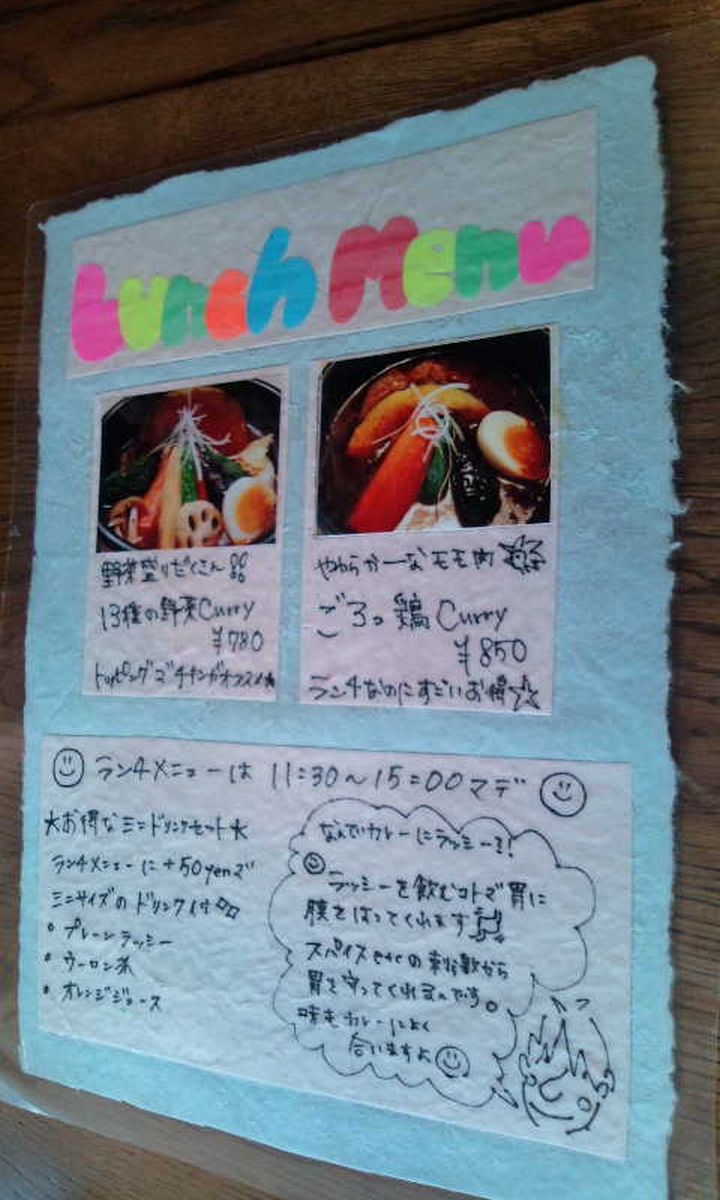 Lunch Menu
野菜盛りだくさん!!
13種の野菜Curry
¥780
トッピングでチキンがオススメ★
やわらかーなモモ肉
ごろっ鶏Curry
¥850
ランチなのにすごいお得☆
ランチメニューは 11:30〜15:00マデ
★お得なミニドリンクセット★
ランチメニューに+50yenで
ミニサイズのドリンク付
・プレーンラッシー
・ウーロン茶
・オレンジジュース
なんでカレーにラッシー?!
ラッシーを飲むコトで胃に
膜をはってくれます
スパイスetcの刺激から
胃を守ってくれるんです。
味もカレーによく
合いますよ